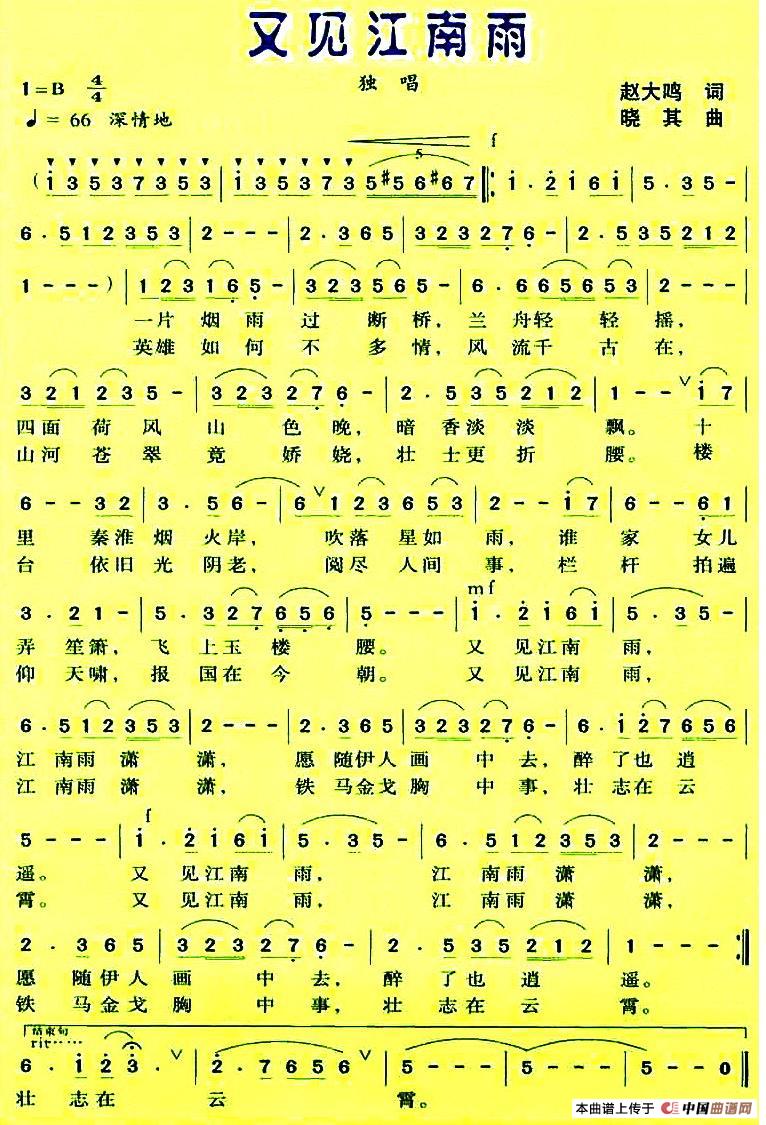 又见江南雨
独唱
1=B 4/4
赵大鸣 词
♩= 66 深情地
晓其 曲
f
5
( i 3 5 3 7 3 5 3 | i 3 5 3 7 3 5 #5 6 #6 7 |: i · 2 i 6 i | 5 · 3 5 - |
6 · 5 1 2 3 5 3 | 2 - - - | 2 · 3 6 5 | 3 2 3 2 7 6 - | 2 · 5 3 5 2 1 2 |
1 - - - ) | 1 2 3 1 6 5 - | 3 2 3 5 6 5 - | 6 · 6 6 5 6 5 3 | 2 - - - |
一片 烟雨 过 断 桥, 兰 舟轻 轻 摇,
英雄 如何 不 多 情, 风 流千 古 在,
3 2 1 2 3 5 - | 3 2 3 2 7 6 - | 2 · 5 3 5 2 1 2 | 1 - - ∨ i 7 |
四面 荷 风 山 色 晚, 暗 香淡 淡 飘。 十
山河 苍 翠 竟 娇 娆, 壮 士更 折 腰。 楼
6 - - 3 2 | 3 · 5 6 - | 6 ∨ 1 2 3 6 5 3 | 2 - - i 7 | 6 - - 6 1 |
里 秦淮 烟 火 岸, 吹落 星如 雨, 谁 家 女儿
台 依旧 光 阴 老, 阅尽 人间 事, 栏 杆 拍遍
mf
3 · 2 1 - | 5 · 3 2 7 6 5 6 | 5 - - - | i · 2 i 6 i | 5 · 3 5 - |
弄 笙 箫, 飞 上玉 楼 腰。 又 见江 南 雨,
仰 天 啸, 报 国在 今 朝。 又 见江 南 雨,
6 · 5 1 2 3 5 3 | 2 - - - | 2 · 3 6 5 | 3 2 3 2 7 6 - | 6 · i 2 7 6 5 6 |
江 南雨 潇 潇, 愿 随伊人 画 中 去, 醉 了也 逍
江 南雨 潇 潇, 铁 马金戈 胸 中 事, 壮 志在 云
f
5 - - - | i · 2 i 6 i | 5 · 3 5 - | 6 · 5 1 2 3 5 3 | 2 - - - |
遥。 又 见江 南 雨, 江 南雨 潇 潇,
霄。 又 见江 南 雨, 江 南雨 潇 潇,
2 · 3 6 5 | 3 2 3 2 7 6 - | 2 · 5 3 5 2 1 2 | 1 - - - :||
愿 随伊人 画 中 去, 醉 了也 逍 遥。
铁 马金戈 胸 中 事, 壮 志在 云 霄。
结束句
rit······
6 · i 2 3 · ∨ | 2 · 7 6 5 6 ∨ | 5 - - - | 5 - - - | 5 - - 0 ||
壮 志在 云 霄。
本曲谱上传于 中国曲谱网